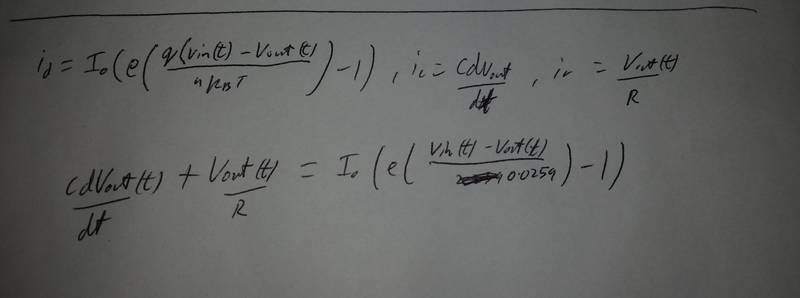 i_d = I_0 ( e ( q(Vin(t) - Vout(t) / n k_B T ) - 1 ) , i_c = C dVout / dt , i_r = Vout(t) / R
C dVout(t) / dt + Vout(t) / R = I_0 ( e ( Vin(t) - Vout(t) / 0.0259 ) - 1 )